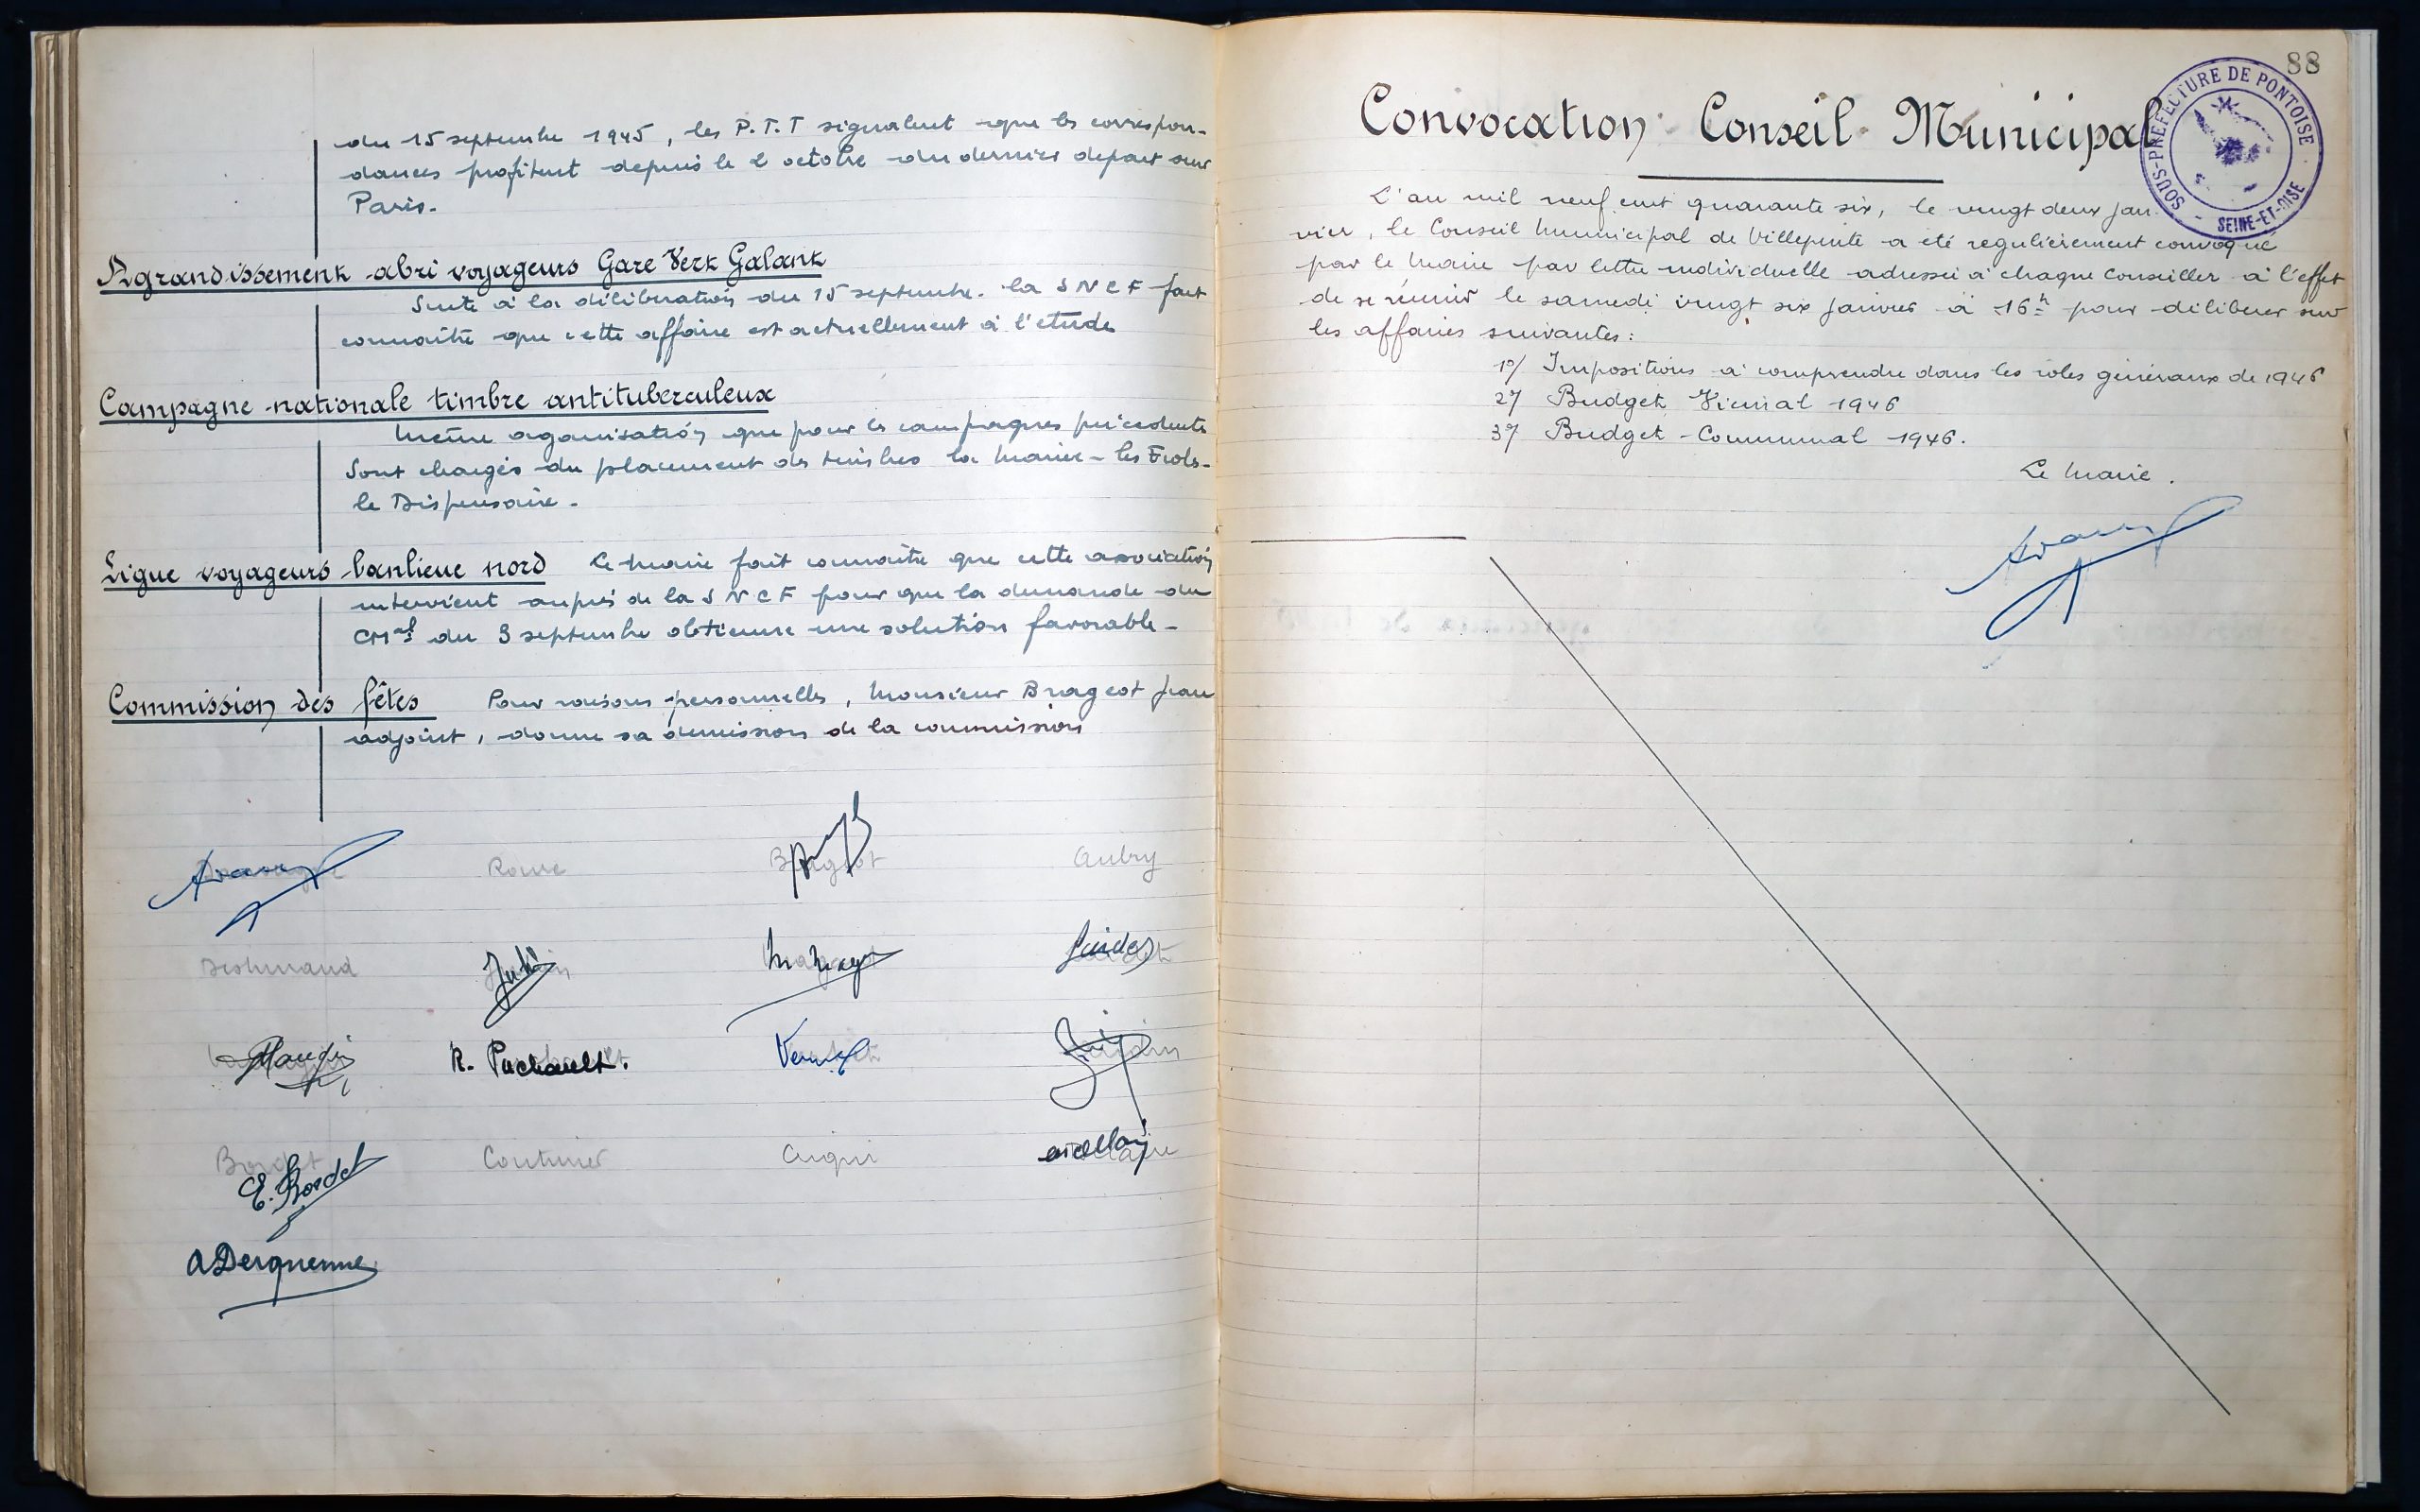 du 15 septembre 1945, les P.T.T signalent que les correspon-
dances profitent depuis le 2 octobre du dernier depart sur
Paris.
Agrandissement abri voyageurs Gare Vert Galant
Suite à la délibération du 15 septembre. la SNCF fait
connaître que cette affaire est actuellement à l'etude
Campagne nationale timbre antituberculeux
Même organisation que pour les campagnes précédentes
Sont chargés du placement des timbres la Mairie - les Ecoles -
le Dispensaire -
Ligue voyageurs banlieue nord Le Maire fait connaître que cette association
intervient auprès de la SNCF pour que la demande du
CMal du 3 septembre obtienne une solution favorable -
Commission des fêtes Pour raisons personnelles, Monsieur Brageot Jean
adjoint, donne sa démission de la commission
Brageot Aubry
R. Pachault.
Bordet Couturier
E. Bordet
A Derquenne
88
Convocation Conseil Municipal
SOUS-PRÉFECTURE DE PONTOISE
SEINE-ET-OISE
L'an mil neuf cent quarante six, le vingt deux jan-
vier, le Conseil Municipal de Villepinte a été regulièrement convoqué
par le Maire par lettre individuelle adressée à chaque Conseiller à l'effet
de se réunir le samedi vingt six janvier à 16h pour délibérer sur
les affaires suivantes:
1°/ Impositions à comprendre dans les rôles généraux de 1946
2°/ Budget Vicinal 1946
3°/ Budget - Communal 1946.
Le Maire.